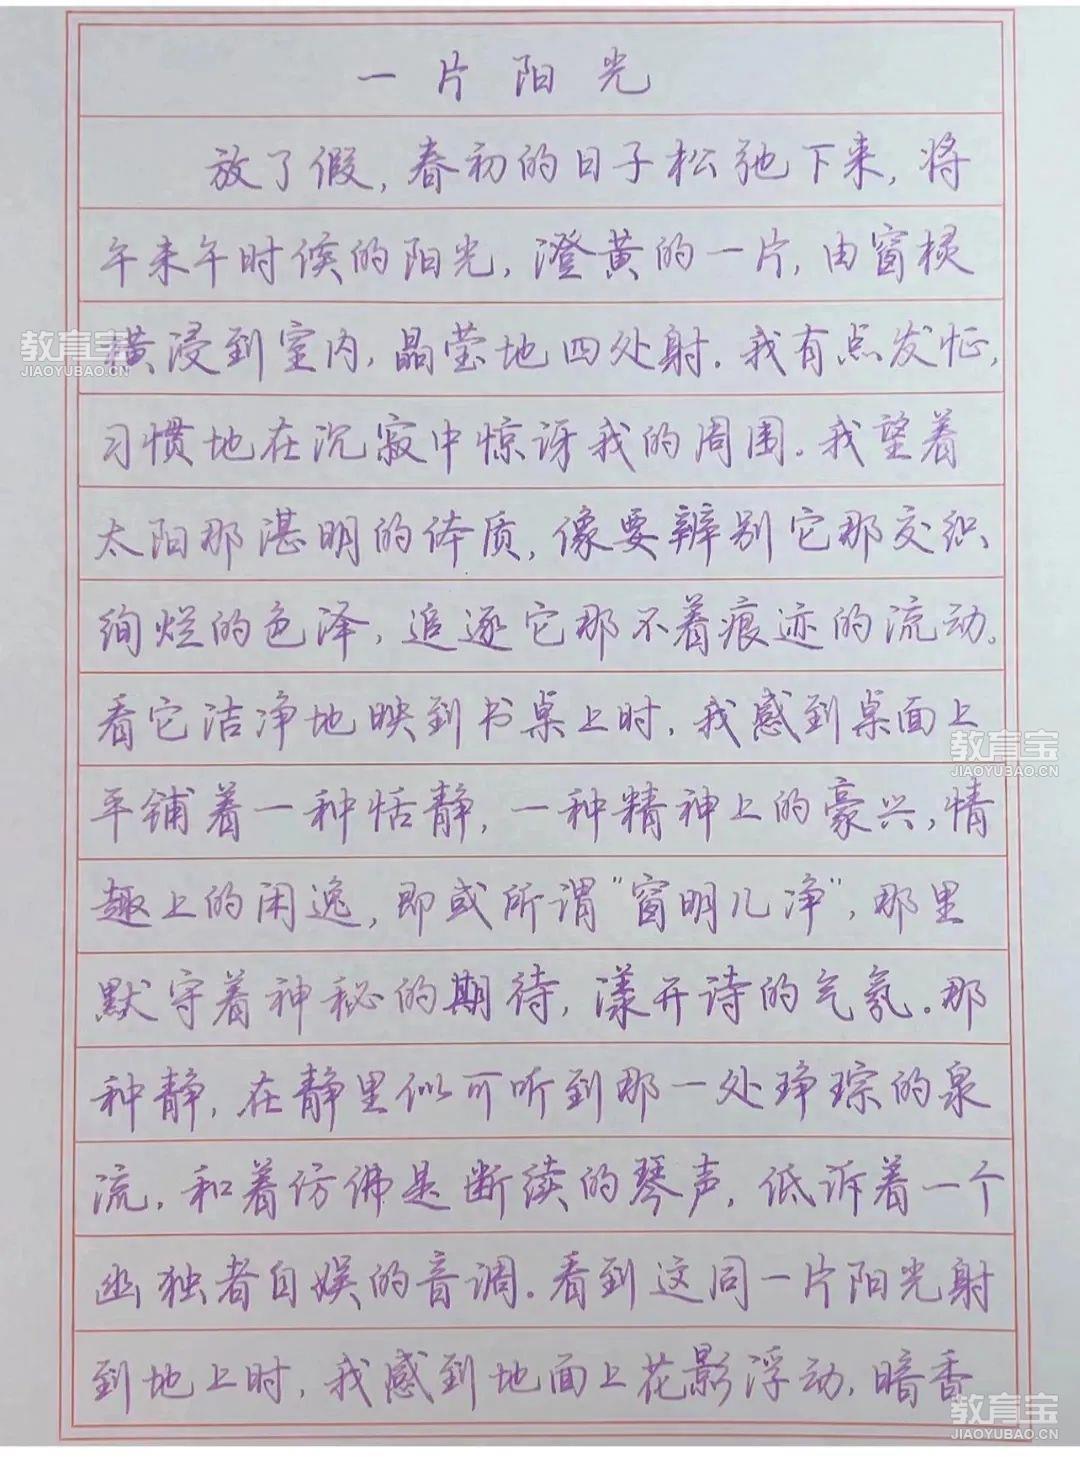 一片阳光
放了假,春初的日子松弛下来,将
午未午时候的阳光,澄黄的一片,由窗棂
横浸到室内,晶莹地四处射.我有点发怔,
习惯地在沉寂中惊讶我的周围。我望着
太阳那湛明的体质,像要辨别它那交织
绚烂的色泽,追逐它那不着痕迹的流动。
看它洁净地映到书桌上时,我感到桌面上
平铺着一种恬静,一种精神上的豪兴,情
趣上的闲逸,即或所谓"窗明几净",那里
默守着神秘的期待,漾开诗的气氛.那
种静,在静里似可听到那一处琤琮的泉
流,和着仿佛是断续的琴声,低诉着一个
幽独者自娱的音调.看到这同一片阳光射
到地上时,我感到地面上花影浮动,暗香
教育宝
JIAOYUBAO.CN
教育宝
JIAOYUBAO.CN
教育宝
JIAOYUBAO.CN